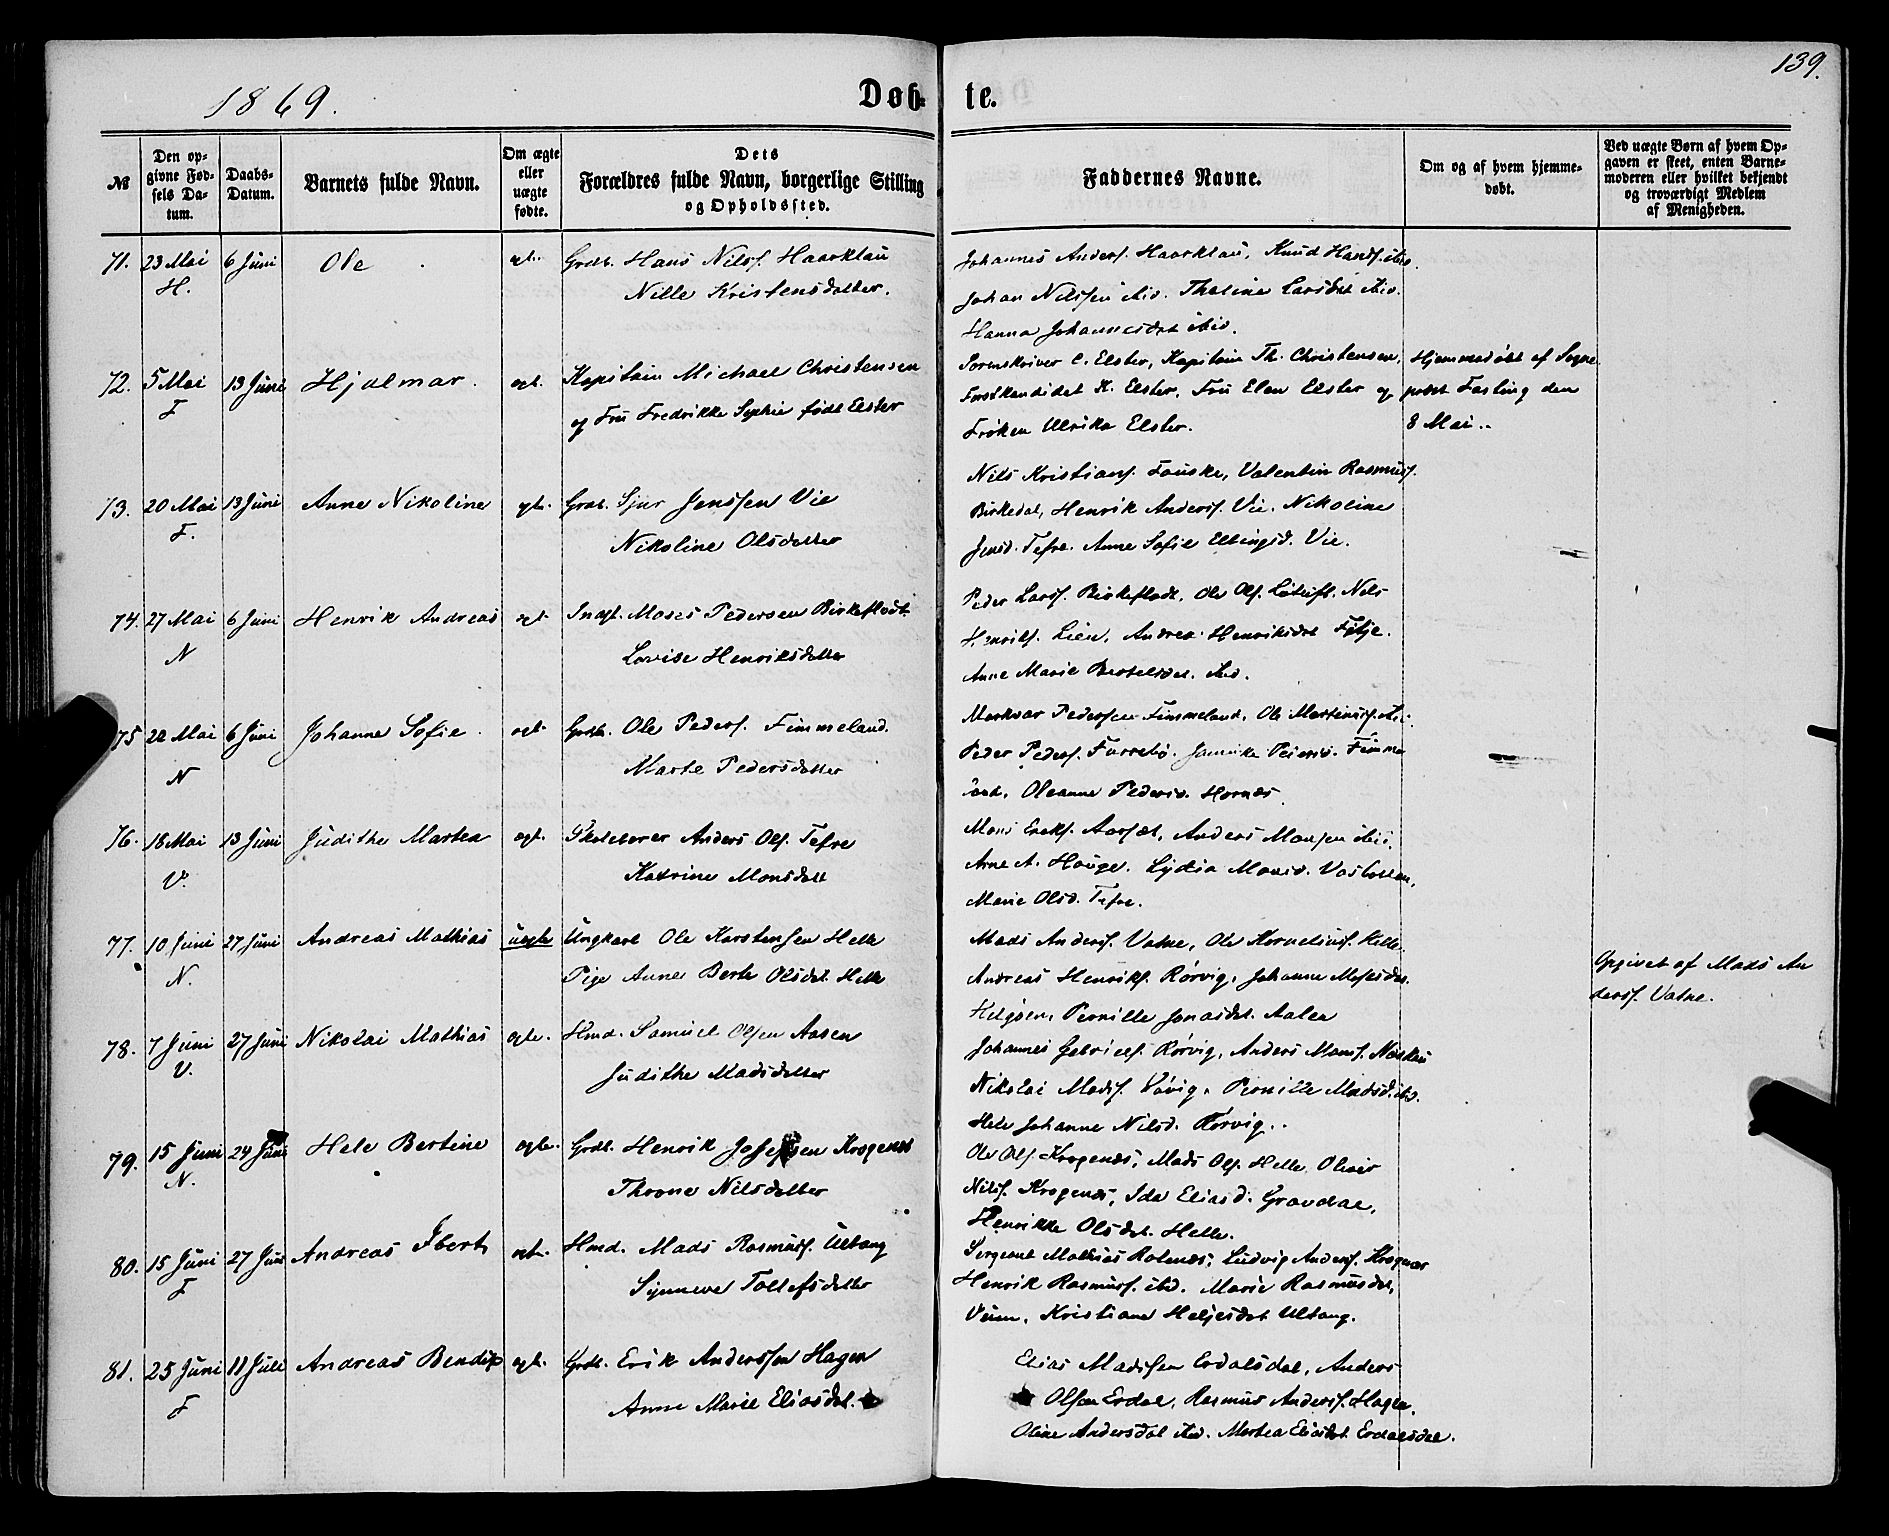 139.
1869.
Døb- te.
№ | Den opgivne Fødsels Datum. | Daabs-Datum. | Barnets fulde Navn. | Om ægte eller uægte fødte. | Dets Forældres fulde Navn, borgerlige Stilling og Opholdssted. | Faddernes Navne. | Om og af hvem hjemmedøbt. | Ved uægte Børn af hvem Opgaven er skeet, enten Barnemoderen eller hvilket bekjendt og troværdigt Medlem af Menigheden.
71. 23 Mai 6 Juni Ole Grdb. Hans Nilss. Haarklau Johannes Anderss. Haarklau, Knud Hanss. ibid.
H. Nille Kristensdatter. Johan Nilssen ibid. Thaline Larsdat ibid.
Hanna Johannesdat ibid.
72. 5 Mai 13 Juni Hjalmar. egt. Kapitain Michael Christensen Sorenskriver C. Elster, Kapitain Th. Christensen, Hjemmedøbt af Sogne
F og Fru Fredrikke Sophie født Elster Forstkandidat K. Elster, Fru Elen Elster og præst Fasting den
Frøken Ulrika Elster. 8 Mai..
Nils Kristians. Fauske, Valentin Rasmuss.
73. 20 Mai 13 Juni Anne Nikoline egt. Grdb. Sjur Jenssen Vie Birkedal, Henrik Anderss. Vie. Nikoline
F. Nikoline Olsdatter Jensd. Tefre. Anne Sofie Ellingsd. Vie.
Peder Larss. Birkeflodt, Ole Ols. Nils
74. 27 Mai 6 Juni Henrik Andreas egt. Indst. Moses Pedersen Birkeflodt Henriks. Lien, Andrea Henriksdat
N Lovise Henriksdatter Anne Marie Bertelsdat. ibid.
75 22 Mai 6 Juni Johanne Sofie. egt. Grdb. Ole Peders. Fimmeland. Markvar Pedersen Fimmeland, Ole Martinuss. ibid.
N Marte Pedersdatter Peder Peders. Furrebø. Fimme
land, Oleanne Pedersd. Hornæs
76. 18 Mai 13 Juni Judithe Martea egt. Skolelærer Anders Ols. Tefre Mons Anders Monsen ibid.
V. Katrine Monsdatt Arne A. Hauge. Lydia Monsd. Vasbotten,
Marie Olsd. Tefre.
77. 10 Juni 27 Juni Andreas Mathias uegte Ungkarl Ole Karstensen Helle Mads Anderss. Vatne, Ole Korneliuss. Helle.
N. Pige Anne Berte Olsdat. Helle Andreas Henriks. Rørvig, Johanne Mosesdat. Opgivet af Mads An
Helgøen, Pernille Jonasdat. ders. Vatne.
78. 7 Juni 27 Juni Nikolai Mathias egte. Hmd. Samuel Olsen Aasen Johannes Gabriels. Rørvig, Anders Mons.
V. Judithe Madsdatter Nikolai Madss. Pernille Madsd. ibid.
Hele Johanne Nilsd. Rørvig..
79. 15 Juni 24 Juni Hele Bertine egte. Grdb. Henrik Josefsen Krogenæs Ole Ols. Krogenæs, Mads Ols. Helle, Oliver
N. Throne Nilsdatter Nilss. Krogenæs, Ida Eliasd. Gravdal,
Henrikke Olsdat. Helle.
80. 15 Juni 27 Juni Andreas Ibert egt. Hmd. Mads Rasmuss. Ultang Sergeant Mathias Rotenæs, Ludvig Anders. Krognæs
F Synneve Tollefsdatter Henrik Rasmuss. ibid. Marie Rasmusdat,
Kristiane Helgesdat Ultang.
81. 25 Juni 11 Juli Andreas Bendix egt. Grdb. Erik Anderssen Hagen Elias Madssen Erdalsdal, Anders
F Anne Marie Eliasdat. Olsen Erdal, Rasmus Anderss. Hagen,
Oline Andersdat ibid. Martea Eliasdat. Erdalsdal.